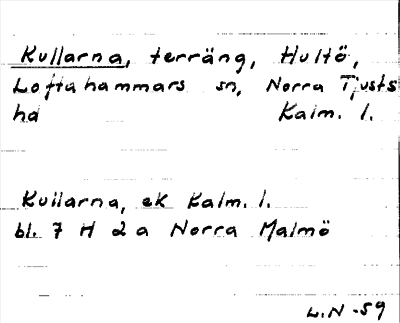 Kullarna, terräng, Hultö,
Loftahammars sn, Norra Tjusts
hd Kalm. l.
Kullarna, ek Kalm. l.
bl. 7 H 2 a Norra Malmö
L.N -59